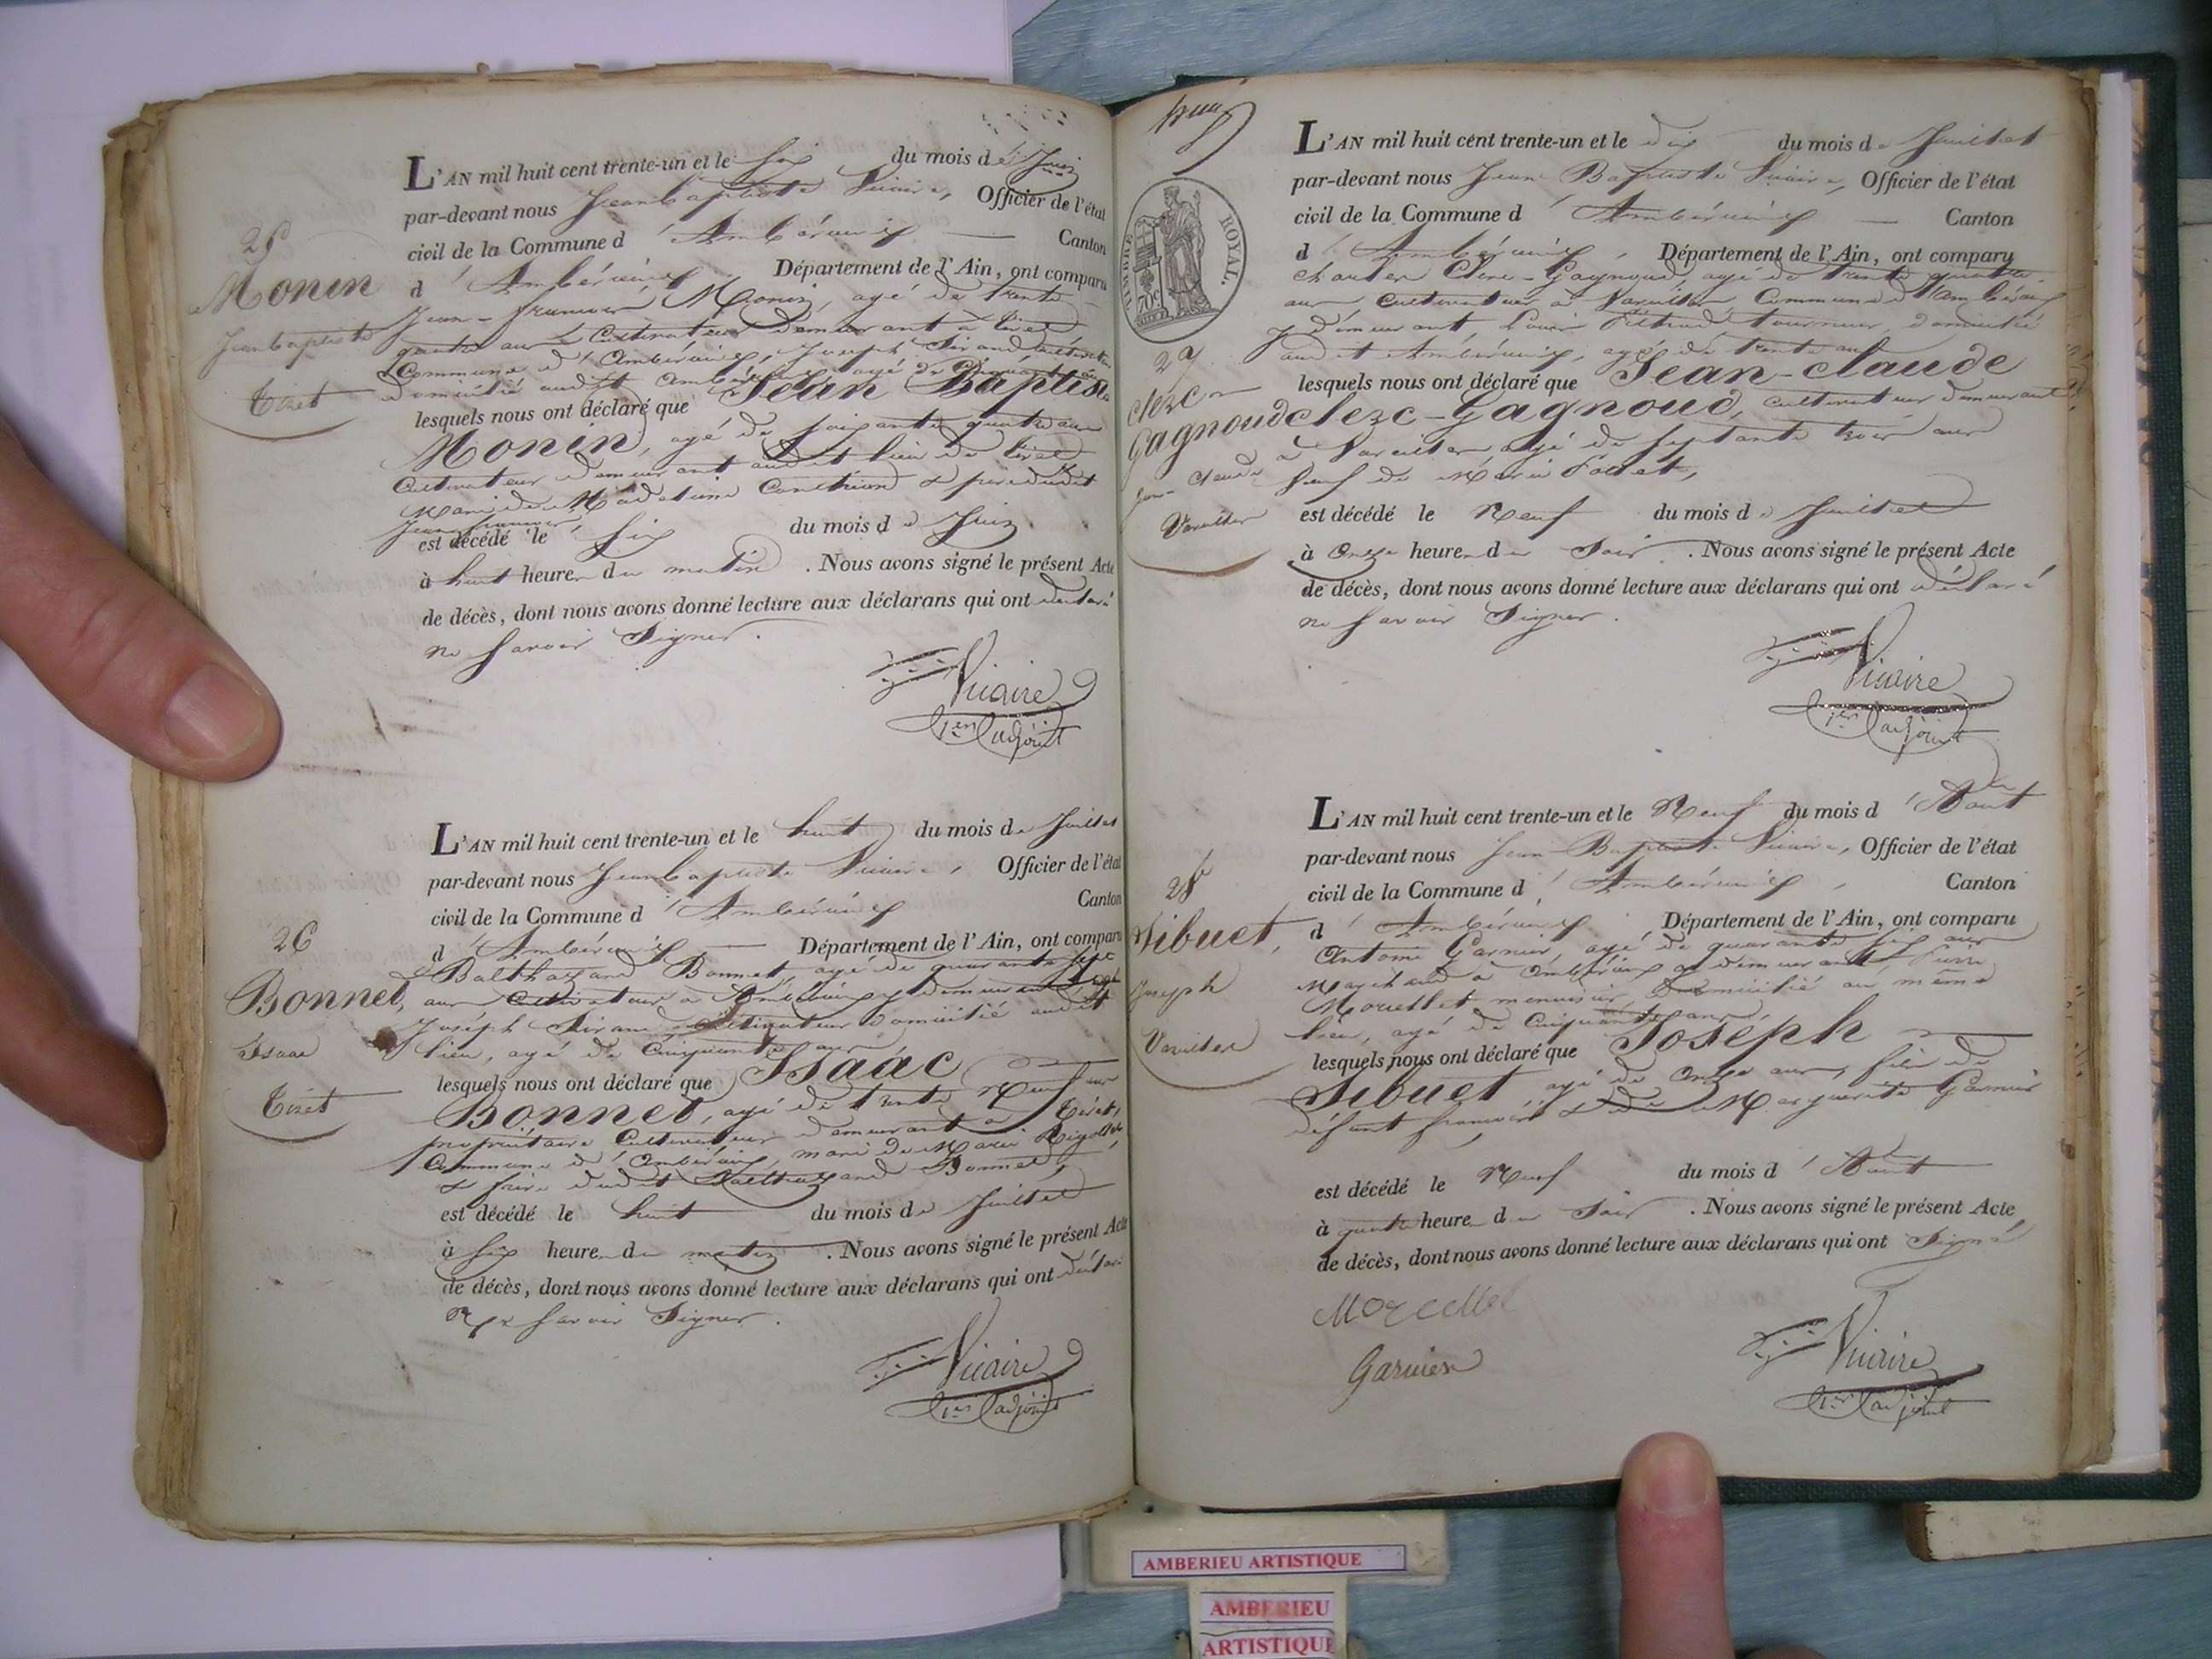 25
Monin
Jean baptiste
Tiret
L'AN mil huit cent trente-un et le six du mois de Juin
par-devant nous Jean baptiste Vicaire, Officier de l'état
civil de la Commune d'Ambérieux Canton
d'Ambérieux, Département de l'Ain, ont comparu
Jean-françois Monin, agé de trente
quatre ans Cultivateur demeurant à tiret
Commune d'Ambérieux, Joseph Sirand Cultivateur
domicilié audit Ambérieux agé de Cinquante ans
lesquels nous ont déclaré que Jean Baptiste
Monin, agé de soixante quatre ans
Cultivateur demeurant audit lieu de tiret
Mari de Madelaine & père dudit
Jean francois
est décédé le six du mois de Juin
à huit heures du matin. Nous avons signé le présent Acte
de décès, dont nous avons donné lecture aux déclarans qui ont déclaré
ne savoir Signer.
Vicaire
1er adjoint
26
Bonnet,
Isaac
Tiret
L'AN mil huit cent trente-un et le huit du mois de Juillet
par-devant nous Jean baptiste Vicaire, Officier de l'état
civil de la Commune d'Ambérieux Canton
d'Ambérieux Département de l'Ain, ont comparu
Balthazard Bonnet, agé de quarante sept
ans Cultivateur à Ambérieux y demeurant &
Joseph Sirand Cultivateur domicilié audit
lieu, agé de Cinquante ans
lesquels nous ont déclaré que Isaac
Bonnet, agé de trente Neuf ans
propriétaire Cultivateur demeurant à Tiret,
Commune d'Ambérieux, mari de Marie
& frère dudit Balthazard Bonnet,
est décédé le huit du mois de Juillet
à six heures du matin. Nous avons signé le présent Acte
de décès, dont nous avons donné lecture aux déclarans qui ont déclaré
Ne savoir Signer.
Vicaire
1er adjoint
TIMBRE ROYAL.
70c
27
clerc-
Gagnoud
Jean-Claude
Vareilles
L'AN mil huit cent trente-un et le dix du mois de Juillet
par-devant nous Jean Baptiste Vicaire, Officier de l'état
civil de la Commune d'Ambérieux Canton
d'Ambérieux, Département de l'Ain, ont comparu
charles Clerc-Gagnoud, agé de trente quatre
ans, Cultivateur à Vareilles Commune d'Ambérieux
y demeurant, Louis tourneur, domicilié
audit Ambérieux, agé de trente ans
lesquels nous ont déclaré que Jean-claude
clerc-Gagnoud, cultivateur demeurant
à Vareilles, agé de septante trois ans
Veuf de Marie
est décédé le Neuf du mois de Juillet
à Onze heures du Soir. Nous avons signé le présent Acte
de décès, dont nous avons donné lecture aux déclarans qui ont déclaré
ne savoir Signer.
Vicaire
1er adjoint
28
Sibuet,
Joseph
Vareilles
L'AN mil huit cent trente-un et le Neuf du mois d'Aout
par-devant nous Jean Baptiste Vicaire, Officier de l'état
civil de la Commune d'Ambérieux, Canton
d'Ambérieux, Département de l'Ain, ont comparu
Antoine Garnier, agé de quarante six ans
Marchand à Ambérieux y demeurant, Pierre
Morellet menuisier, domicilié au même
lieu, agé de Cinquante ans,
lesquels nous ont déclaré que Joseph
Sibuet agé de Onze ans, fils de
défunt francois & de Marguerite Garnier
est décédé le Neuf du mois d'Aout
à quatre heures du Soir. Nous avons signé le présent Acte
de décès, dont nous avons donné lecture aux déclarans qui ont Signé
Morellet
Garnier
Vicaire
1er adjoint
AMBERIEU ARTISTIQUE
AMBERIEU
ARTISTIQUE